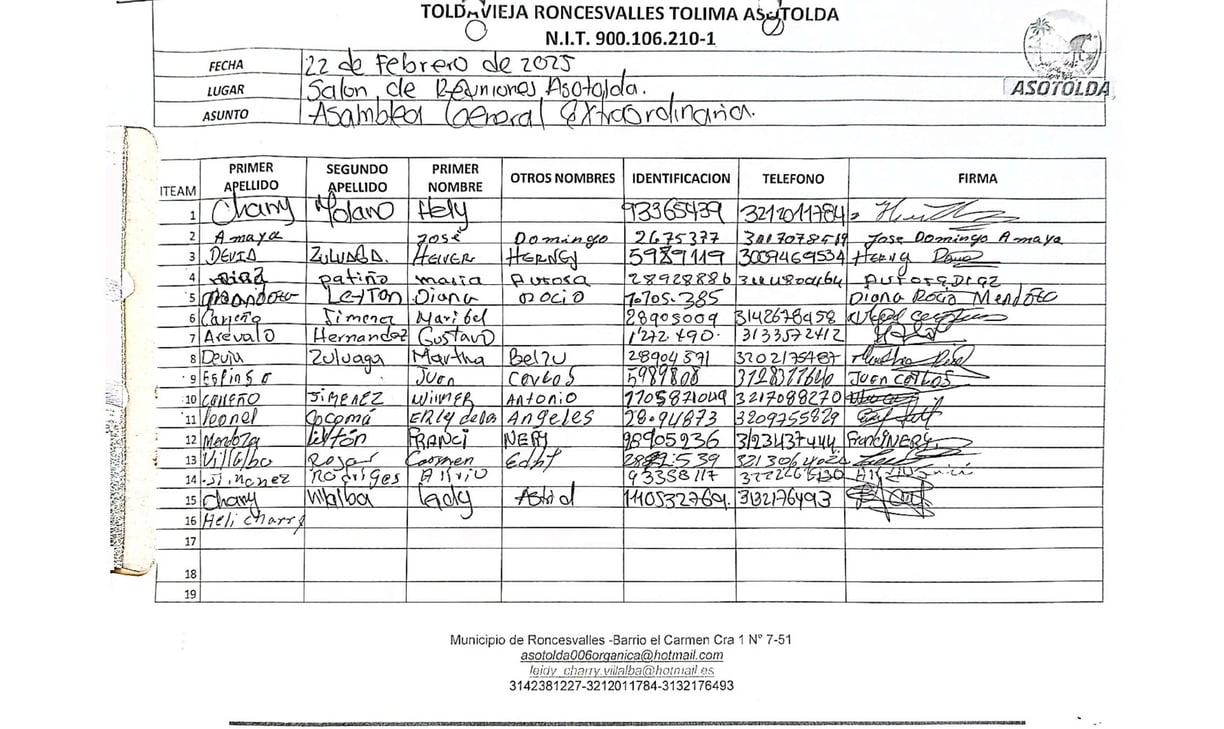 TOLDAVIEJA RONCESVALLES TOLIMA ASOTOLDA
N.I.T. 900.106.210-1
ASOTOLDA
FECHA 22 de Febrero de 2025
LUGAR Salon de Reuniones Asotolda.
ASUNTO Asamblea General Extraordinaria.
ITEAM PRIMER APELLIDO SEGUNDO APELLIDO PRIMER NOMBRE OTROS NOMBRES IDENTIFICACION TELEFONO FIRMA
1 Charry Molano Hely 93365439 3212011784
2 Amaya José Domingo 2675377 Jose Domingo Amaya
3 DEVIA ZULUAGA. HELVER HERNEY 5989119 3009469534 HERNEY
4 Diaz patiño maria Aurora 28928886 AURORA DIAZ
5 Mendoza Leyton Diana Rocio Diana Rocio Mendoza
6 Carreño Jimenez Maribel 28905009 3142678958
7 Arevalo Hernandez Gustavo 3133572412
8 Devia Zuluaga Martha 28904591 3202175487
9 Espinosa Juan Carlos 5989808 Juan Carlos
10 CARREÑO JIMENEZ WILMER Antonio 3217088270
11 Leonel Cocomá ERly de los Angeles 3209755829
12 Mendoza Leyton FRANCI NERY 3123437444 Franci NERY
13 Villalba Rojas Carmen
14 Jimenez Rodriges 93358117
15 Charry Villalba Leidy Astrid 3132176493
16 Heli charry
17
18
19
Municipio de Roncesvalles -Barrio el Carmen Cra 1 N° 7-51
asotolda006organica@hotmail.com
leidy_charry.villalba@hotmail.es
3142381227-3212011784-3132176493